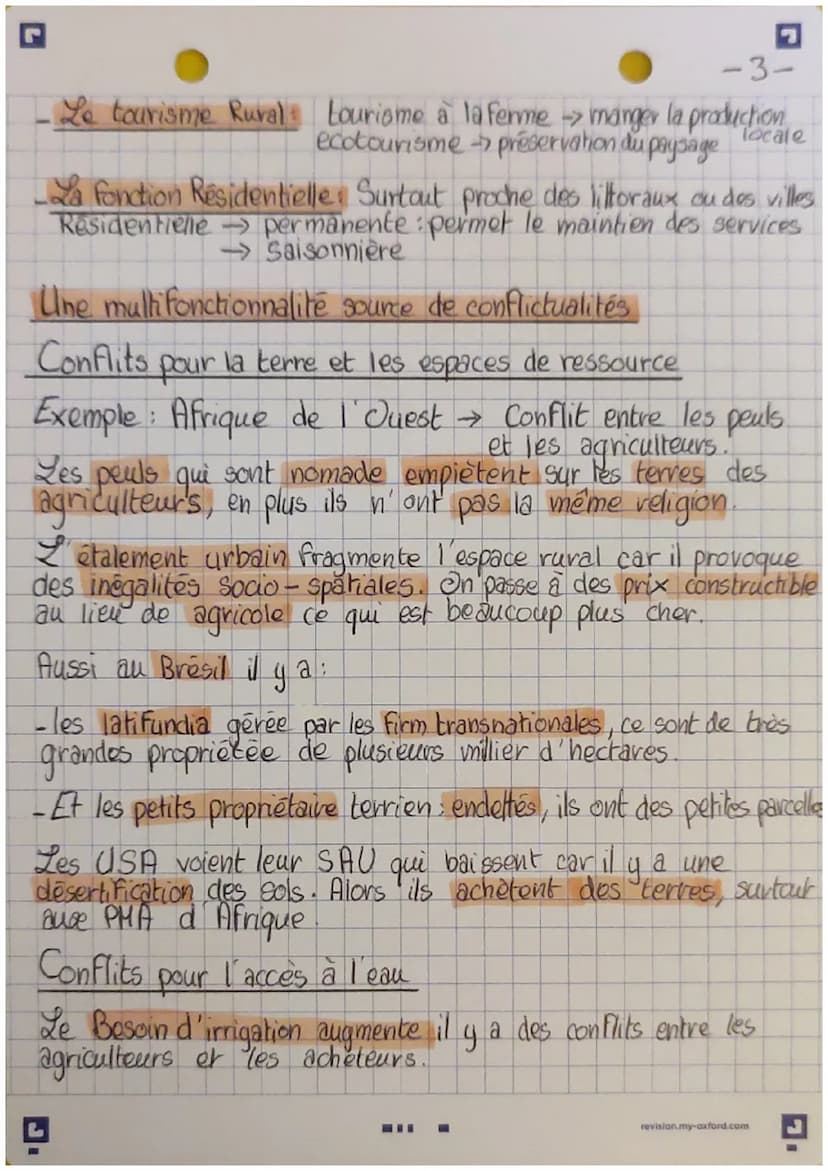 -3-
- Le tourisme Rural : tourisme à la ferme -> manger la production locale
ecotourisme -> préservation du paysage
- La fonction Résidentielle : Surtout proche des littoraux ou des villes
Résidentielle -> permanente : permet le maintien des services
-> saisonnière
Une multifonctionnalité source de conflictualités
Conflits pour la terre et les espaces de ressource
Exemple : Afrique de l'Ouest -> Conflit entre les peuls
et les agriculteurs.
Les peuls qui sont nomade empiètent sur les terres des
agriculteurs, en plus ils n'ont pas la même religion.
L'étalement urbain fragmente l'espace rural car il provoque
des inégalités socio-spatiales. On passe à des prix constructible
au lieu de agricole ce qui est beaucoup plus cher.
Aussi au Brésil il y a :
- les latifundia gérée par les firm transnationales, ce sont de très
grandes propriétée de plusieurs millier d'hectares.
- Et les petits propriétaire terrien : endettés, ils ont des petites parcelle
Les USA voient leur SAU qui baissent car il y a une
désertification des sols. Alors ils achètent des terres, surtout
aux PMA d'Afrique.
Conflits pour l'accès à l'eau
Le Besoin d'irrigation augmente il y a des conflits entre les
agriculteurs et les acheteurs.
revision.my-oxford.com